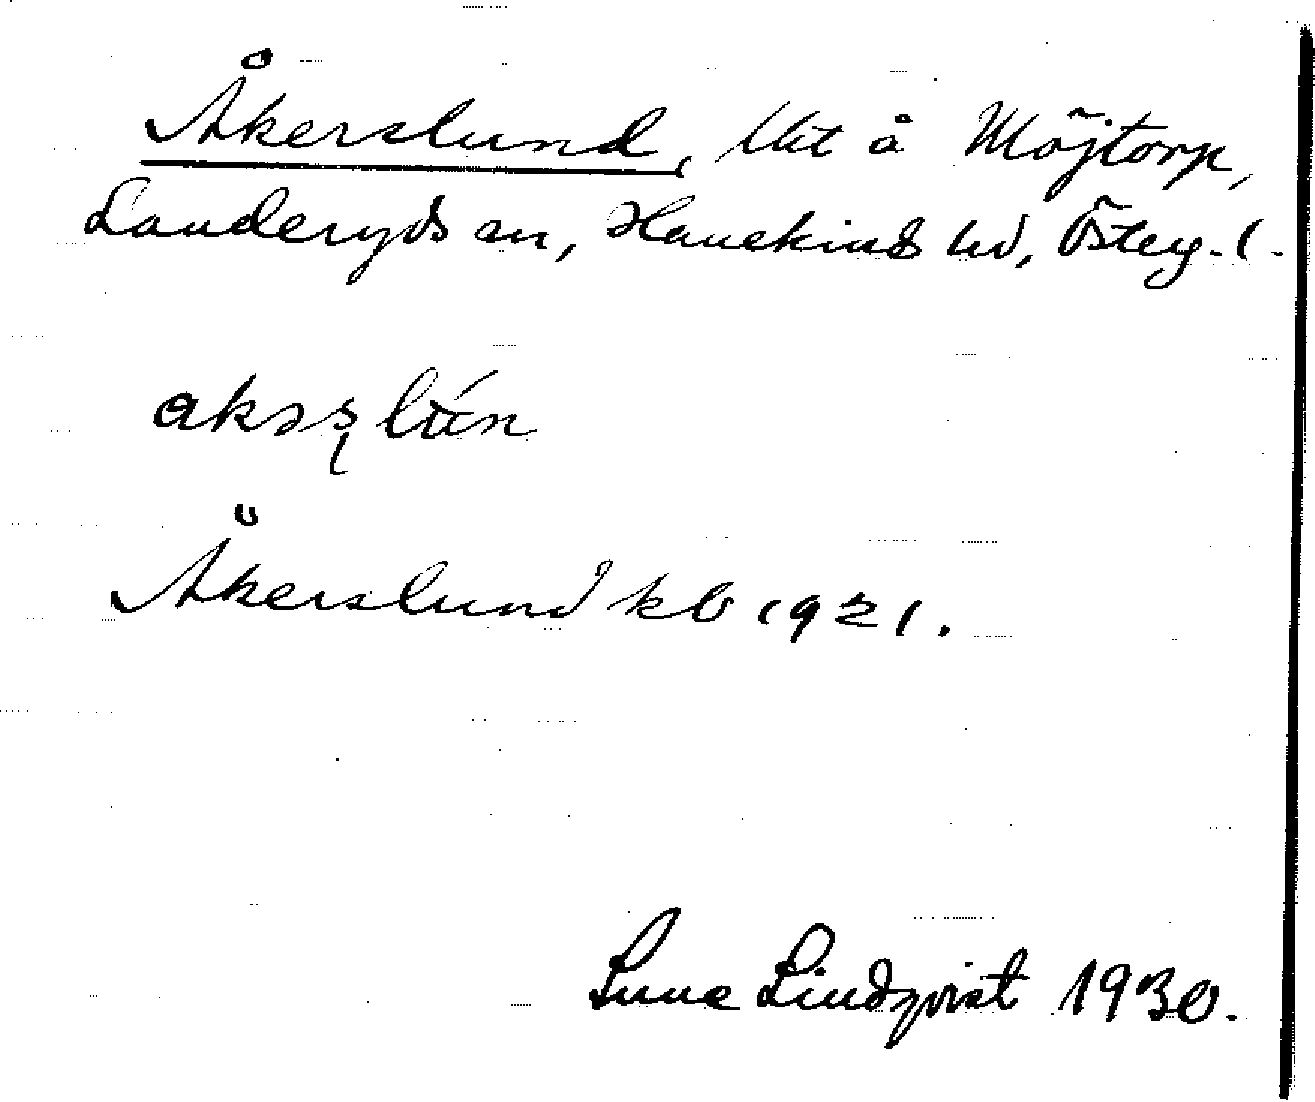 Åkerslund, lht å Möjtorp,
Landeryds sn, Hanekinds hd, Österg. l.
Åkerslund kb 1921.
Sune Lindqvist 1930.